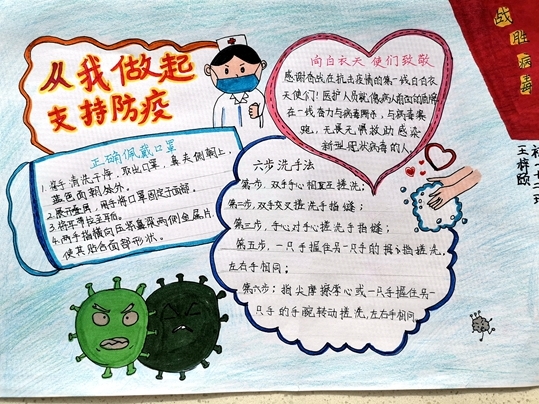 从我做起
支持防疫
向白衣天使们致敬
感谢奋战在抗击疫情的第一线白衣
天使们!医护人员就像病人前面的盾牌
在一线奋力与病毒
跑,无
新型冠状病毒的人
战胜病毒
正确佩戴口罩
1.双手清洗干净,取出口罩,鼻夹侧朝上,
蓝色面朝外。
2.展开叠层,用手将口罩固定于面部。
3.将耳带拉至耳后。
4.两手指横向压紧鼻梁两侧金属片,
使其贴合面部形状。
六步洗手法
第一步,双手手心相互搓洗;
第二步:双手交叉搓洗手指缝;
第三步,手心对手心搓洗手指缝;
第五步,一只手握住另一只手的拇指搓洗,
左右手相同;
第六步:指尖摩擦掌心或一只手握住另
一只手的手腕转动搓洗,左右手相同